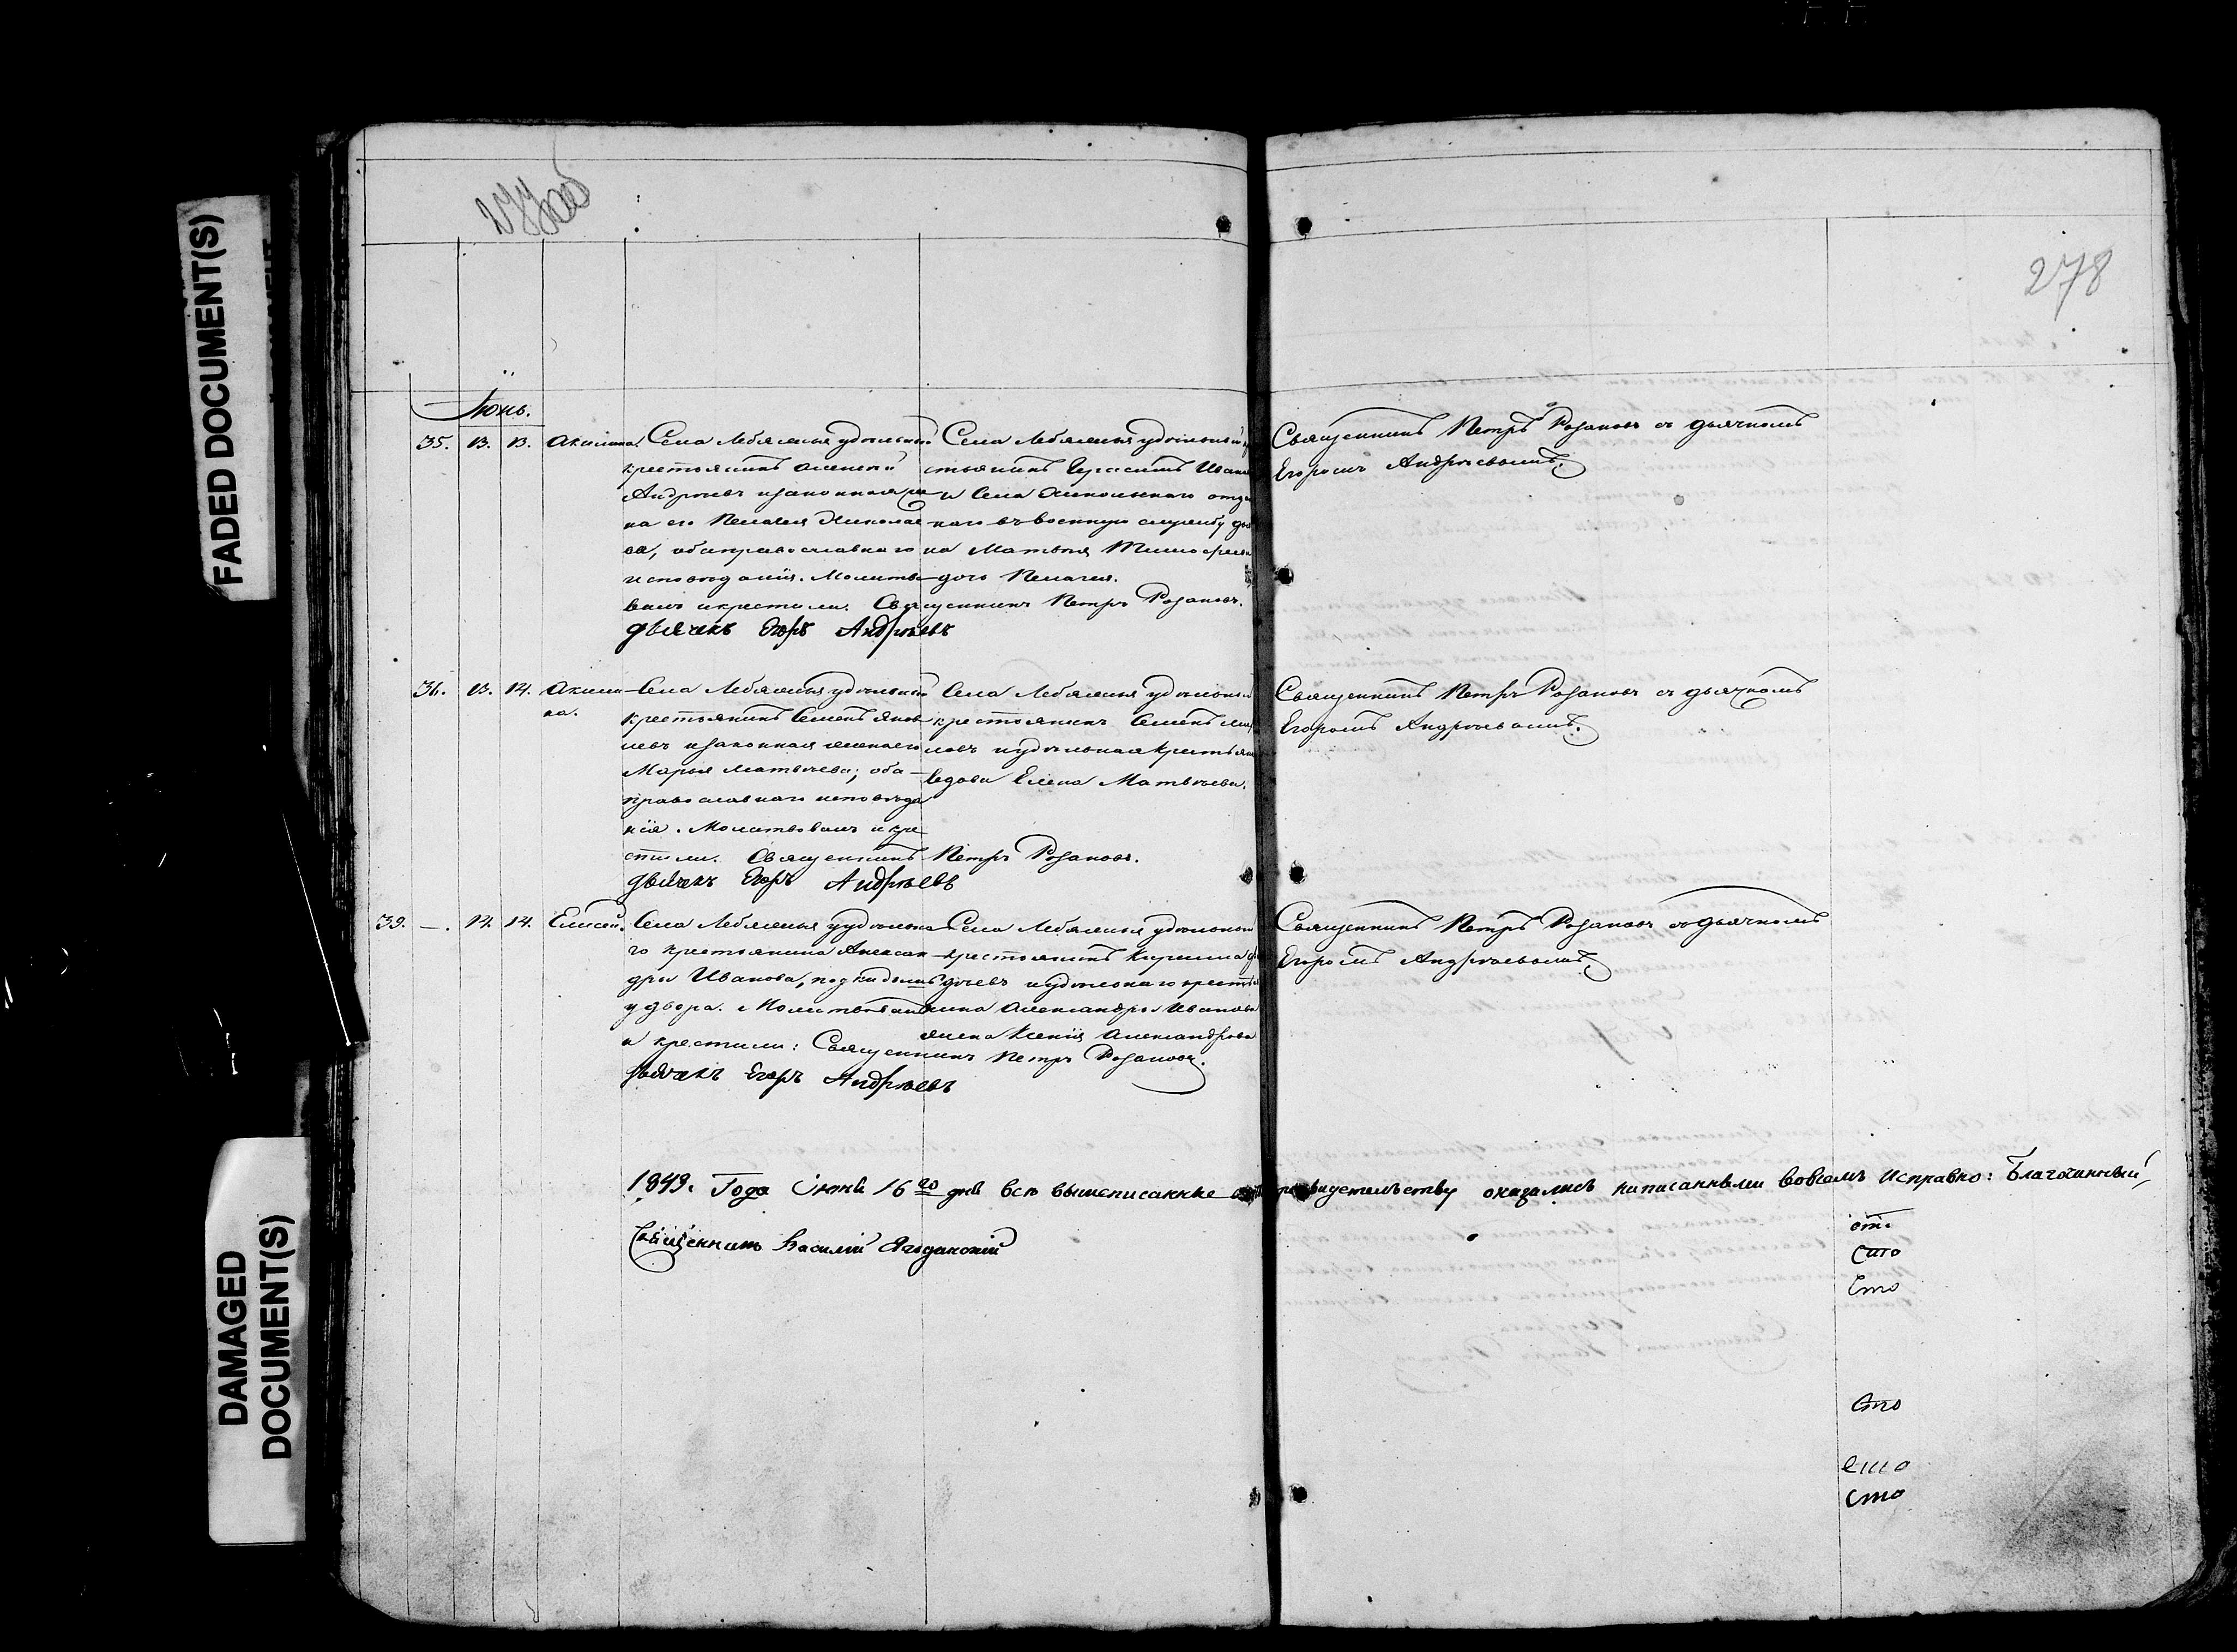 FADED DOCUMENT(S)
DAMAGED
DOCUMENT(S)
277об
278
Іюнь.
35. 13. 13. Акилина.
Села Лебяжья удѣльный
крестьянинъ Алексѣй
Андреевъ изаконная же
на его Пелагея Николае
ва, оба православнаго
исповѣданія. Молитво
валъ и крестили. Священникъ Петръ Розановъ.
Дьячекъ Егоръ Андрѣевъ
Села Лебяжья удѣльный кре
стьянинъ Герасимъ Ивановъ
и Села Никольскаго отдан
наго въ военную службу
на Матвѣя Тимофеева
дочь Пелагея.
Священникъ Петръ Розановъ съ дьячкомъ
Егоромъ Андреевымъ.
36. 13. 14. Акили
на.
Села Лебяжья удѣльный
крестьянинъ Семенъ Яков
левъ изаконная жена его
Марья Матвѣева; оба
православнаго исповѣда
нія. Молитвовалъ и кре
стили. Священникъ Петръ Розановъ.
Дьячекъ Егоръ Андрѣевъ
Села Лебяжья удѣльный
крестьянинъ Семенъ
ловъ иудѣльная крестьян
вдова Елена Матвѣева.
Священникъ Петръ Розановъ съ дьячкомъ
Егоромъ Андреевымъ.
39. —. 14. 14. Елисей.
Села Лебяжья уудѣльна
го крестьянина Алексан
дра Иванова, подкидышъ
у двора. Молитвовалъ
и крестили: Священникъ Петръ Розановъ.
Дьячекъ Егоръ Андрѣевъ
Села Лебяжья удѣльный
крестьянинъ Кирилла
дѣевъ иудѣльнаго кресть
нина Александра Иванова
жена Ксенія Александрова
Священникъ Петръ Розановъ съ дьячкомъ
Егоромъ Андреевымъ.
1849. Года Іюня 16го дня всѣ вышеписанные свидетельству оказались написанными вовсемъ исправно: Благочинный,
Священникъ Василій Ягодинскій
от.
сто
сто
сто
сто
сто